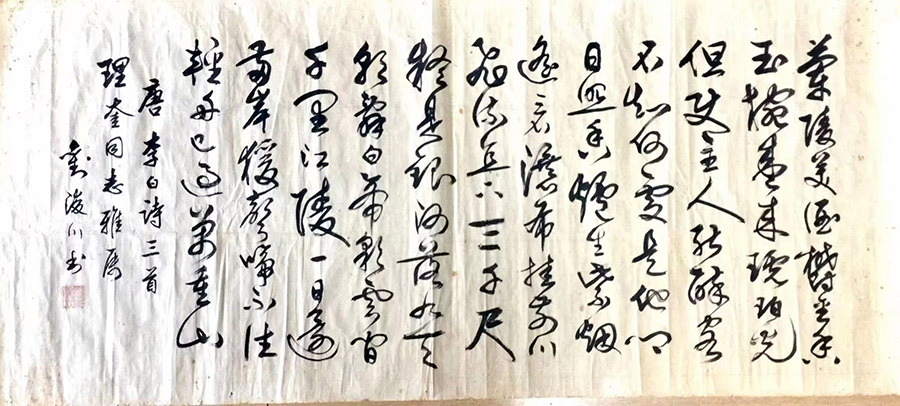 蘭陵美酒欝金香
玉椀盛来琥珀光
但使主人能醉客
不知何处是他鄉
日照香爐生紫烟
遙看瀑布挂前川
飛流直下三千尺
疑是銀河落九天
朝辞白帝彩雲间
千里江陵一日還
兩岸猿聲啼不住
輕舟已過萬重山
唐李白詩三首
理奎同志雅属
劉浚川书